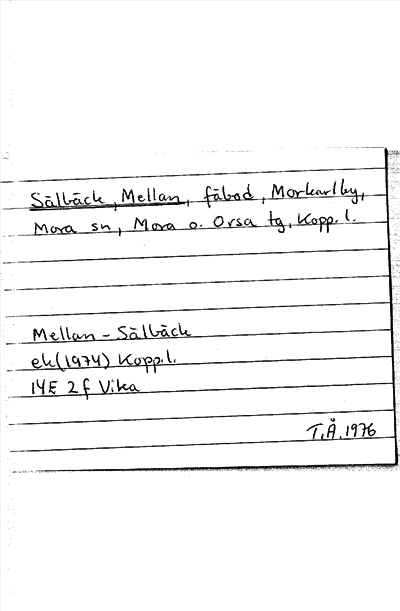 Sälbäck, Mellan, fäbod, Morkarlby,
Mora sn, Mora o. Orsa tg, Kopp. l.
Mellan-Sälbäck
ek(1974) Kopp.l.
14E 2f Vika
T.Å. 1976